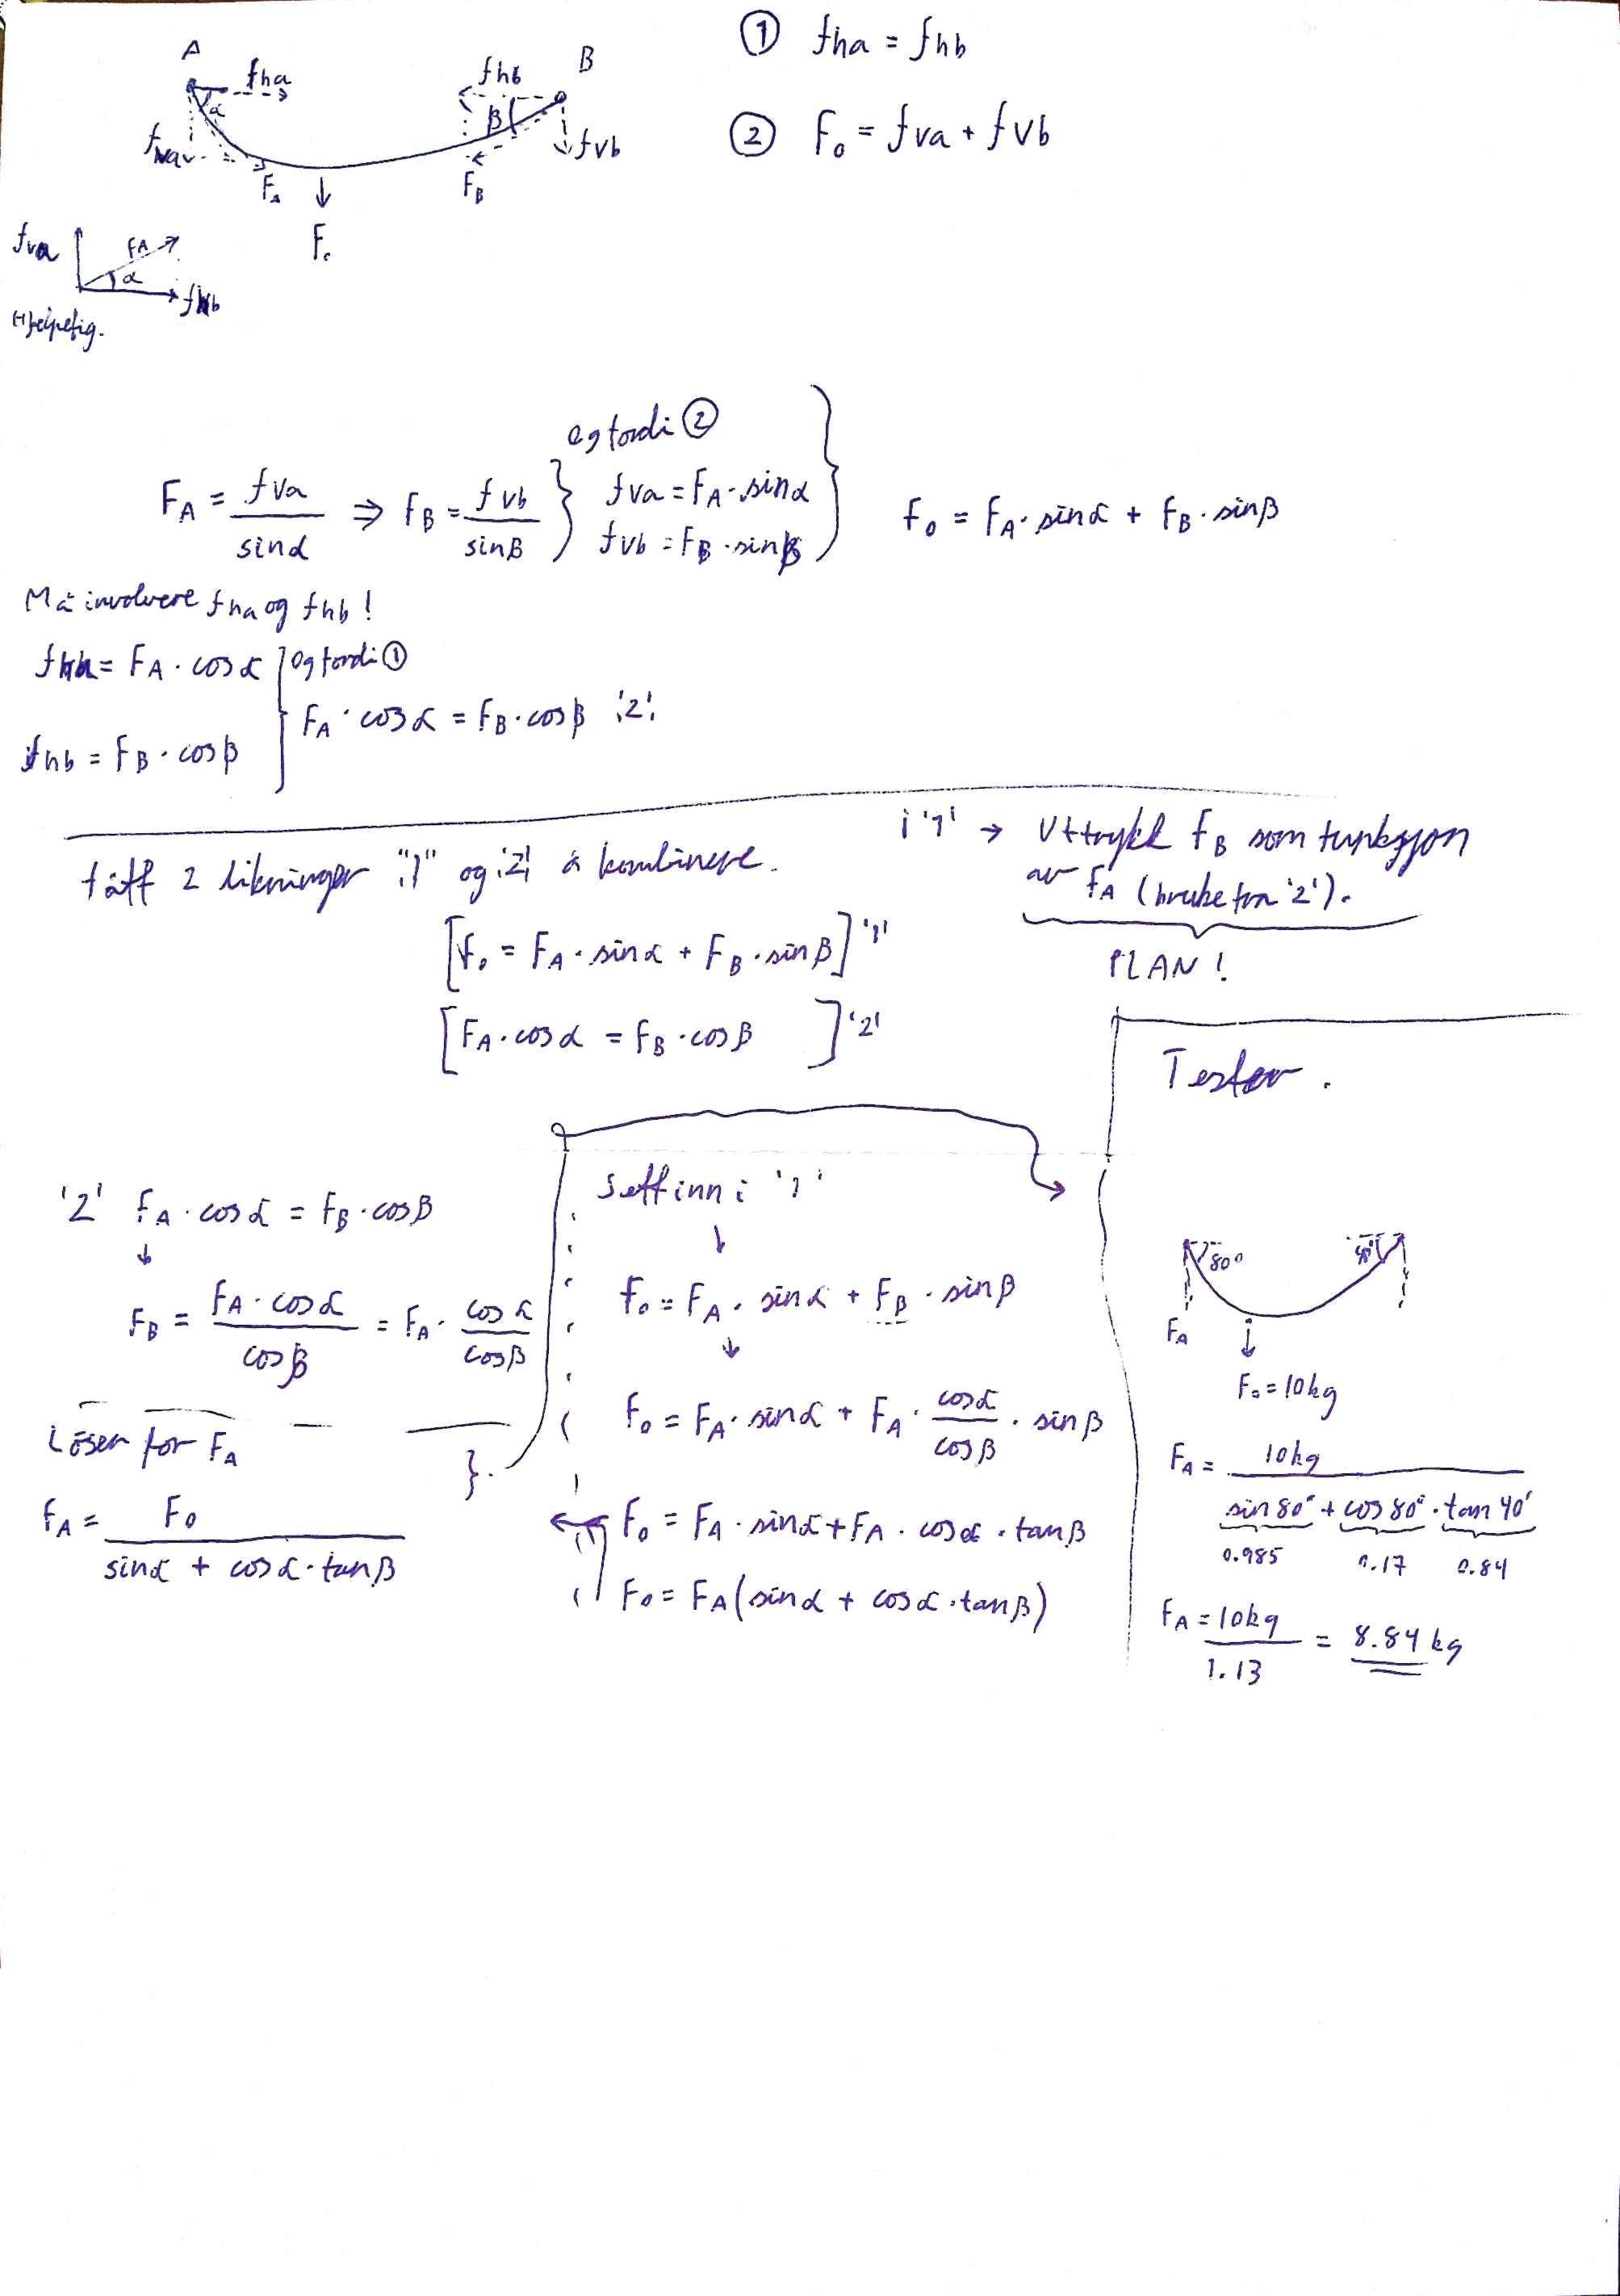 A
fha
fhb
B
α
β
fva
fvb
FA
FB
F₀
① fha = fhb
② F₀ = fva + fvb
fva
FA
α
fhb
Hjelpefig.
og fordi ②
FA = fva / sinα ⇒ FB = fvb / sinβ } fva = FA · sinα
fvb = FB · sinβ
F₀ = FA · sinα + FB · sinβ
Må involvere fha og fhb!
fha = FA · cosα
og fordi ①
FA · cosα = FB · cosβ '2'
fhb = FB · cosβ
fått 2 likninger "1" og '2' å kombinere.
i '1' → Uttrykk FB som funksjon
av FA (bruke fra '2').
PLAN!
[F₀ = FA · sinα + FB · sinβ] '1'
[FA · cosα = FB · cosβ ] '2'
'2' FA · cosα = FB · cosβ
↓
FB = FA · cosα / cosβ = FA · cosα / cosβ
Löser for FA
FA = F₀ / sinα + cosα · tanβ
Sett inn i '1'
↓
F₀ = FA · sinα + FB · sinβ
↓
F₀ = FA · sinα + FA · cosα / cosβ · sinβ
F₀ = FA · sinα + FA · cosα · tanβ
F₀ = FA (sinα + cosα · tanβ)
Tester.
80°
40°
FA
F₀ = 10kg
FA = 10kg / sin 80° + cos 80° · tan 40°
0.985 0.17 0.84
FA = 10kg / 1.13 = 8.84 kg